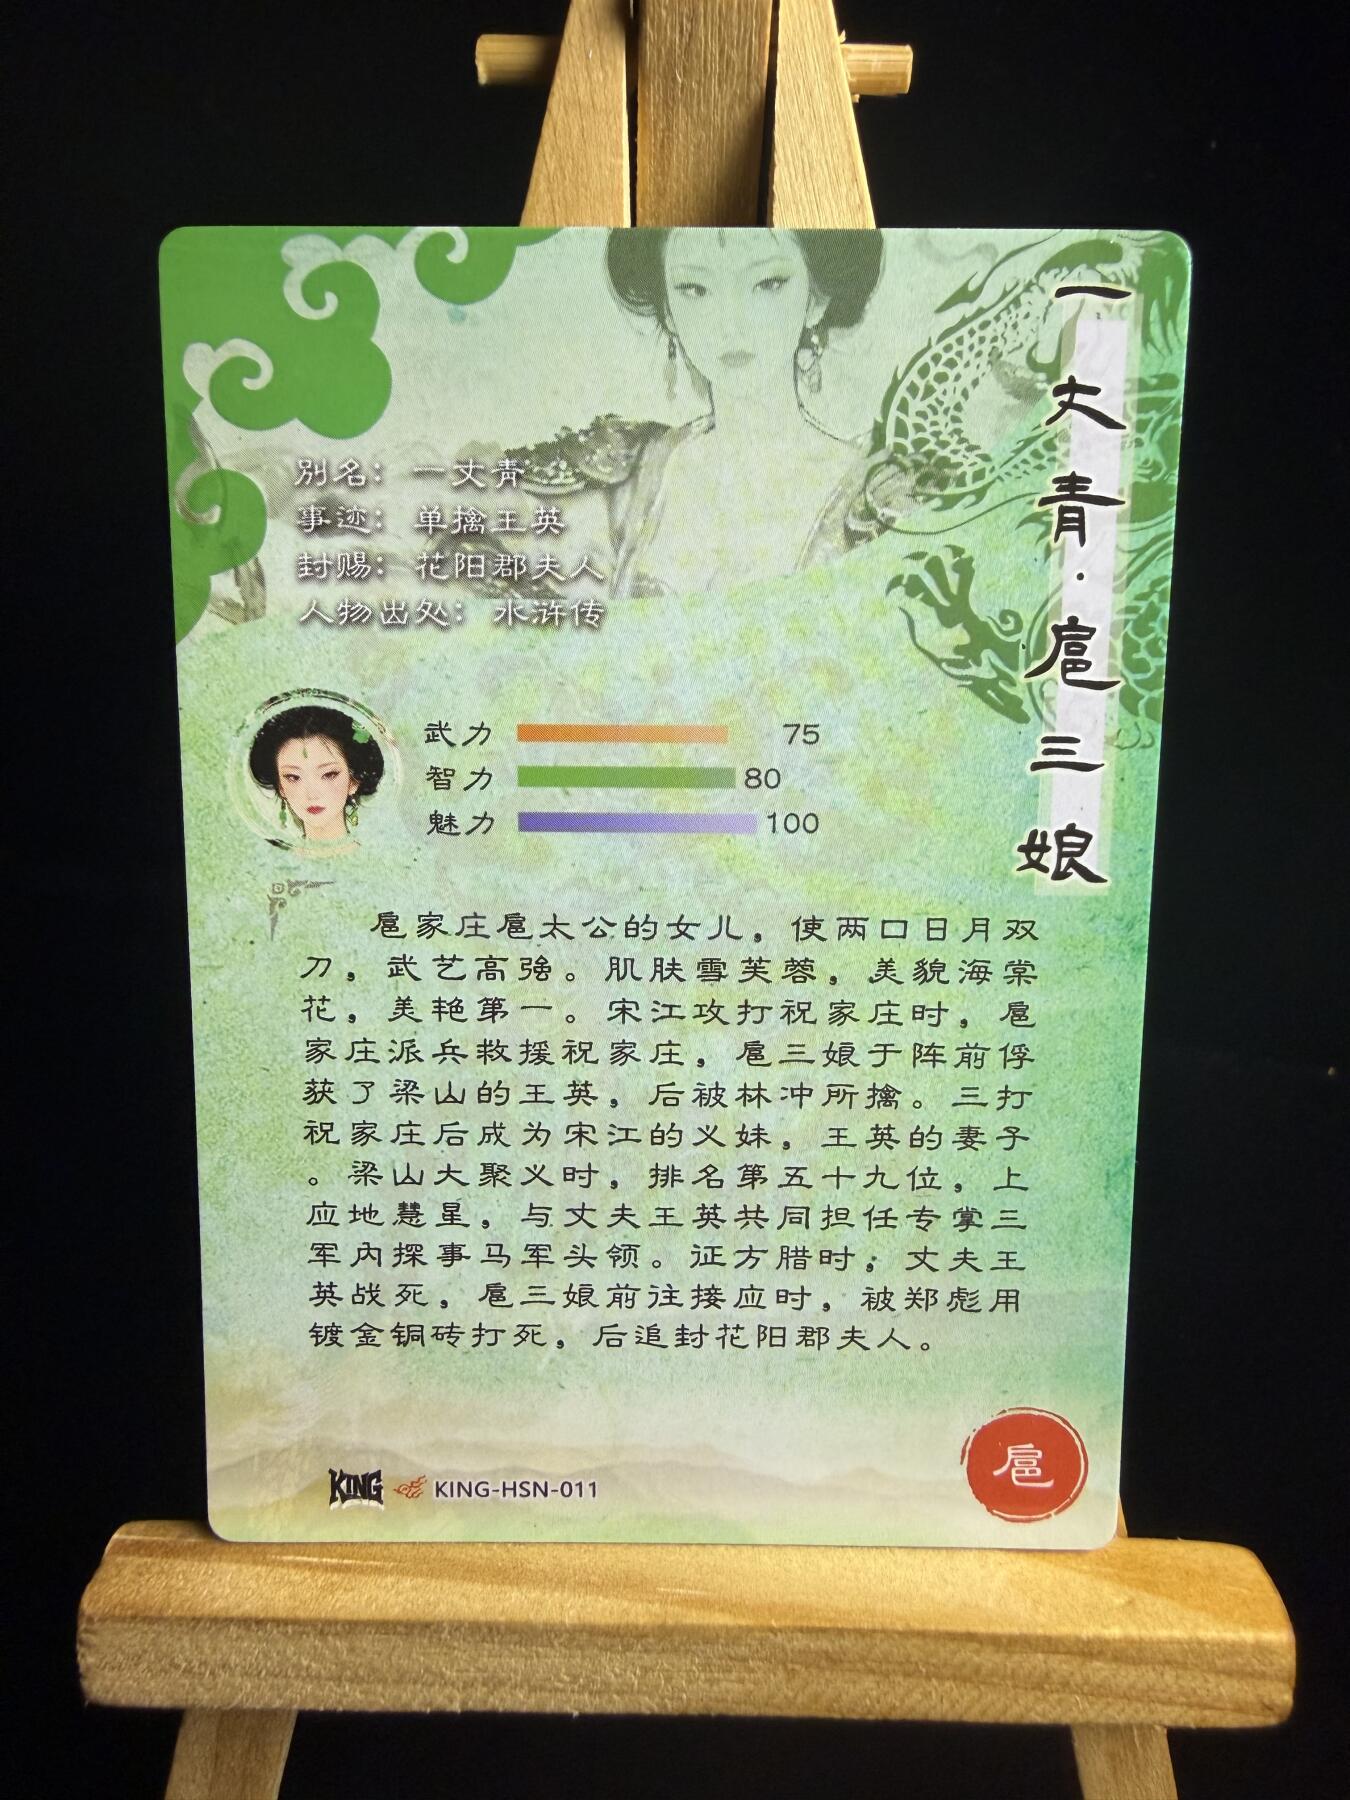 一丈青·扈三娘
别名：一丈青
事迹：单擒王英
封赐：花阳郡夫人
人物出处：水浒传
武力 75
智力 80
魅力 100
扈家庄扈太公的女儿，使两口日月双
刀，武艺高强。肌肤雪芙蓉，美貌海棠
花，美艳第一。宋江攻打祝家庄时，扈
家庄派兵救援祝家庄，扈三娘于阵前俘
获了梁山的王英，后被林冲所擒。三打
祝家庄后成为宋江的义妹，王英的妻子
。梁山大聚义时，排名第五十九位，上
应地慧星，与丈夫王英共同担任专掌三
军内探事马军头领。征方腊时，丈夫王
英战死，扈三娘前往接应时，被郑彪用
镀金铜砖打死，后追封花阳郡夫人。
KING KING-HSN-011
扈